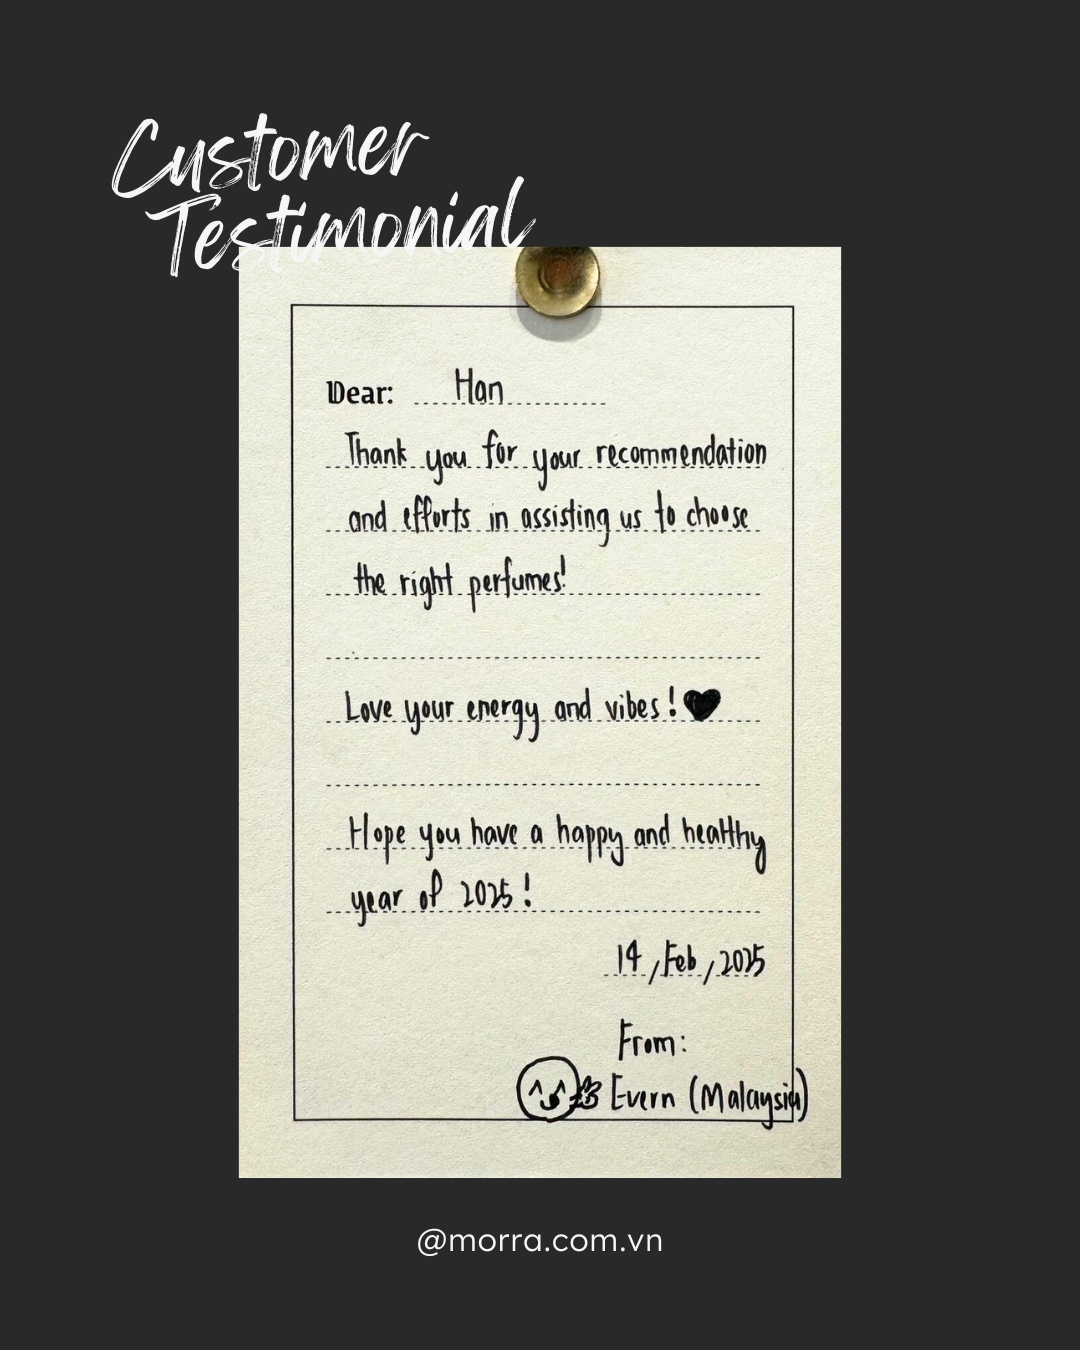 Customer
Testimonial
Dear: Han
Thank you for your recommendation
and efforts in assisting us to choose
the right perfumes!
Love your energy and vibes! ♥
Hope you have a happy and healthy
year of 2025!
14/Feb/2025
From:
Evern (Malaysia)
@morra.com.vn